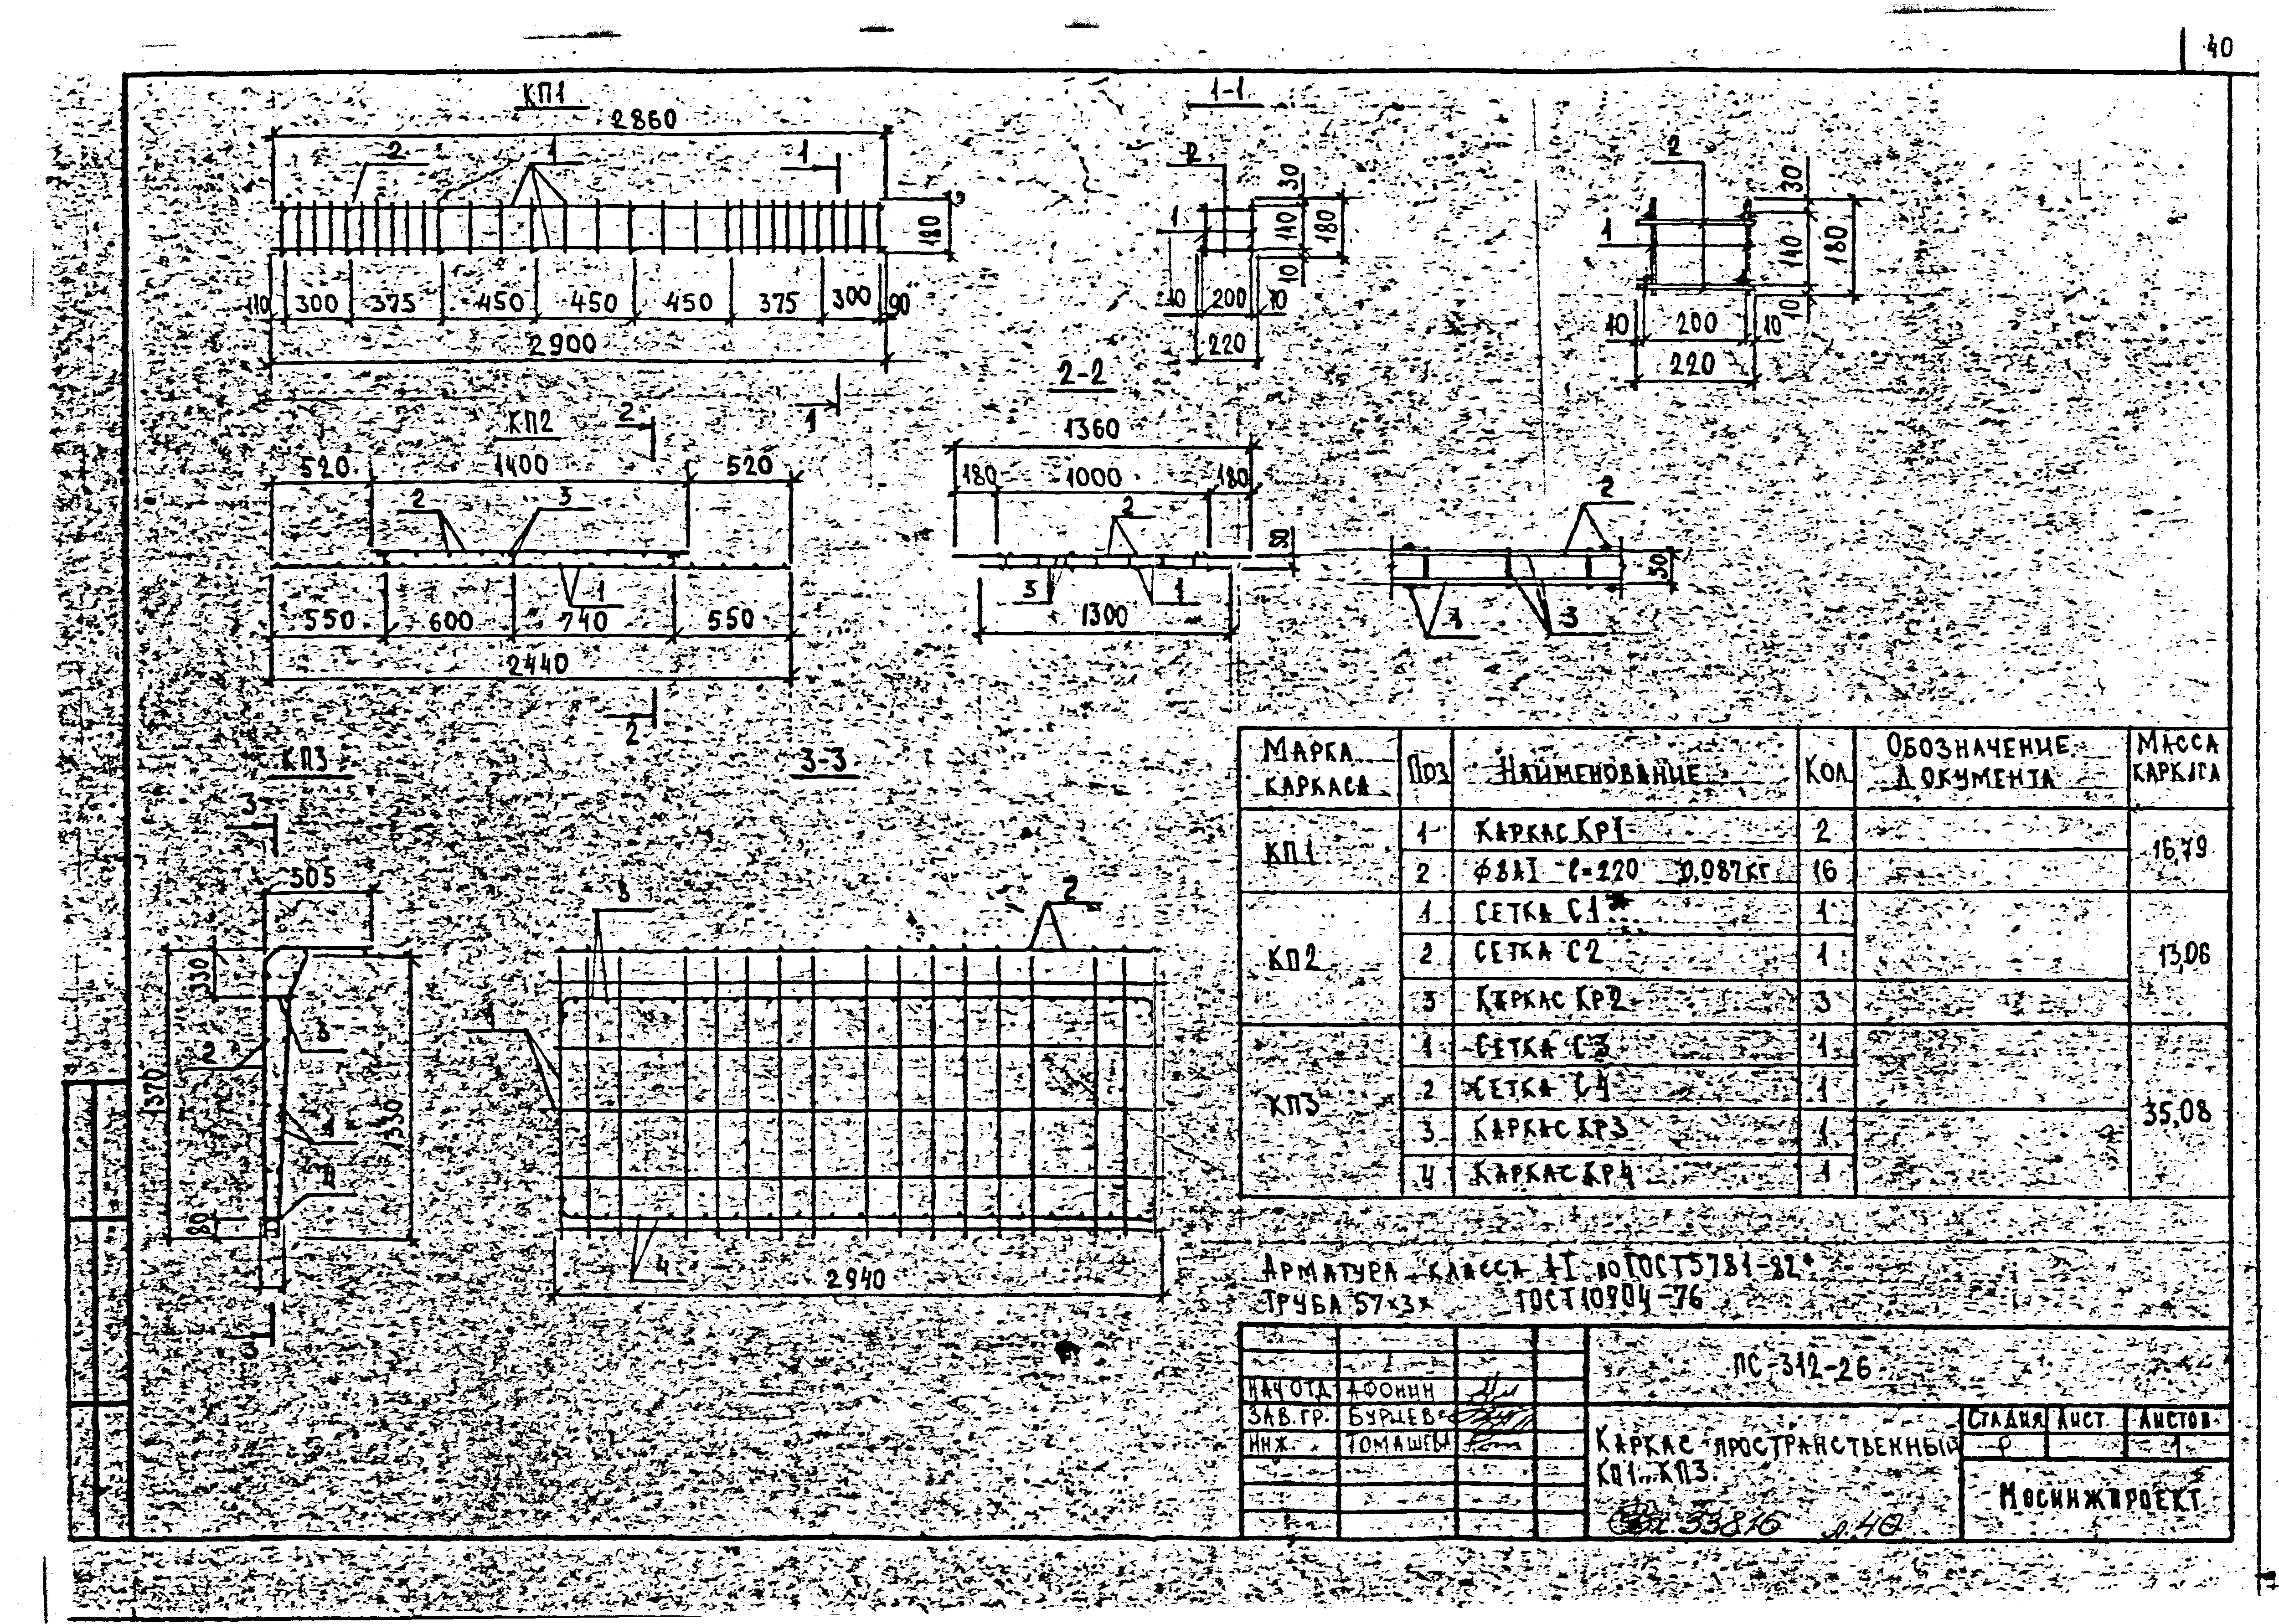 40
КП1
2860
2
1
1
180
110 300 375 450 450 450 375 300 90
2900
1
1-1
2
1
30
140
180
10
10 200 10
220
2
1
30
140
180
10
10 200 10
220
КП2
2
520 1400 520
2 3
1
550 600 740 550
2440
2
2-2
1360
180 1000 180
2
50
3 1
1300
2
50
1 3
КП3
3
505
330
2
3
1370
1330
1
4
80
3
3-3
3 2
1
4
2940
МАРКА КАРКАСА ПОЗ НАИМЕНОВАНИЕ КОЛ ОБОЗНАЧЕНИЕ ДОКУМЕНТА МАССА КАРКАСА
КП1 1 КАРКАС КР1 2 16,79
2 Ф8АI ℓ=220 0,087КГ 16
КП2 1 СЕТКА С1* 1 13,06
2 СЕТКА С2 1
3 КАРКАС КР2 3
КП3 1 СЕТКА С3 1 35,08
2 СЕТКА С4 1
3 КАРКАС КР3 1
4 КАРКАС КР4 1
АРМАТУРА КЛАССА А-I ПО ГОСТ 5781-82*
ТРУБА 57×3× ГОСТ 10704-76
ПС-312-26
НАЧ ОТД АФОНИН
ЗАВ. ГР. БУРЦЕВ
ИНЖ. ТОМАШЕВА
КАРКАС ПРОСТРАНСТВЕННЫЙ
КП1...КП3
СТАДИЯ ЛИСТ ЛИСТОВ
Р 1
МОСИНЖПРОЕКТ
33816 л.40